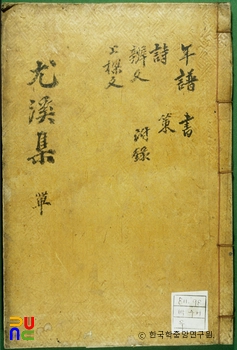 年譜 書
詩 策
辨文 附錄
上樑文
尤溪集 單
© 한국학중앙연구원